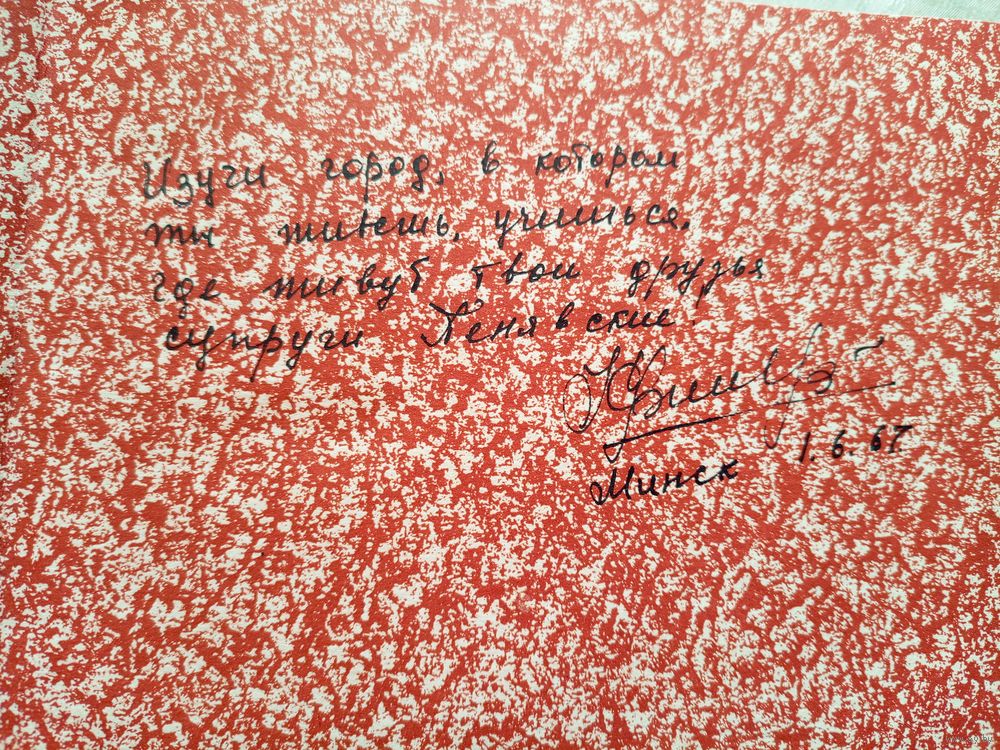 Изучи город, в котором
ты живешь, учишься,
где живут твои друзья
супруги Генявские.
Минск 1.6.67